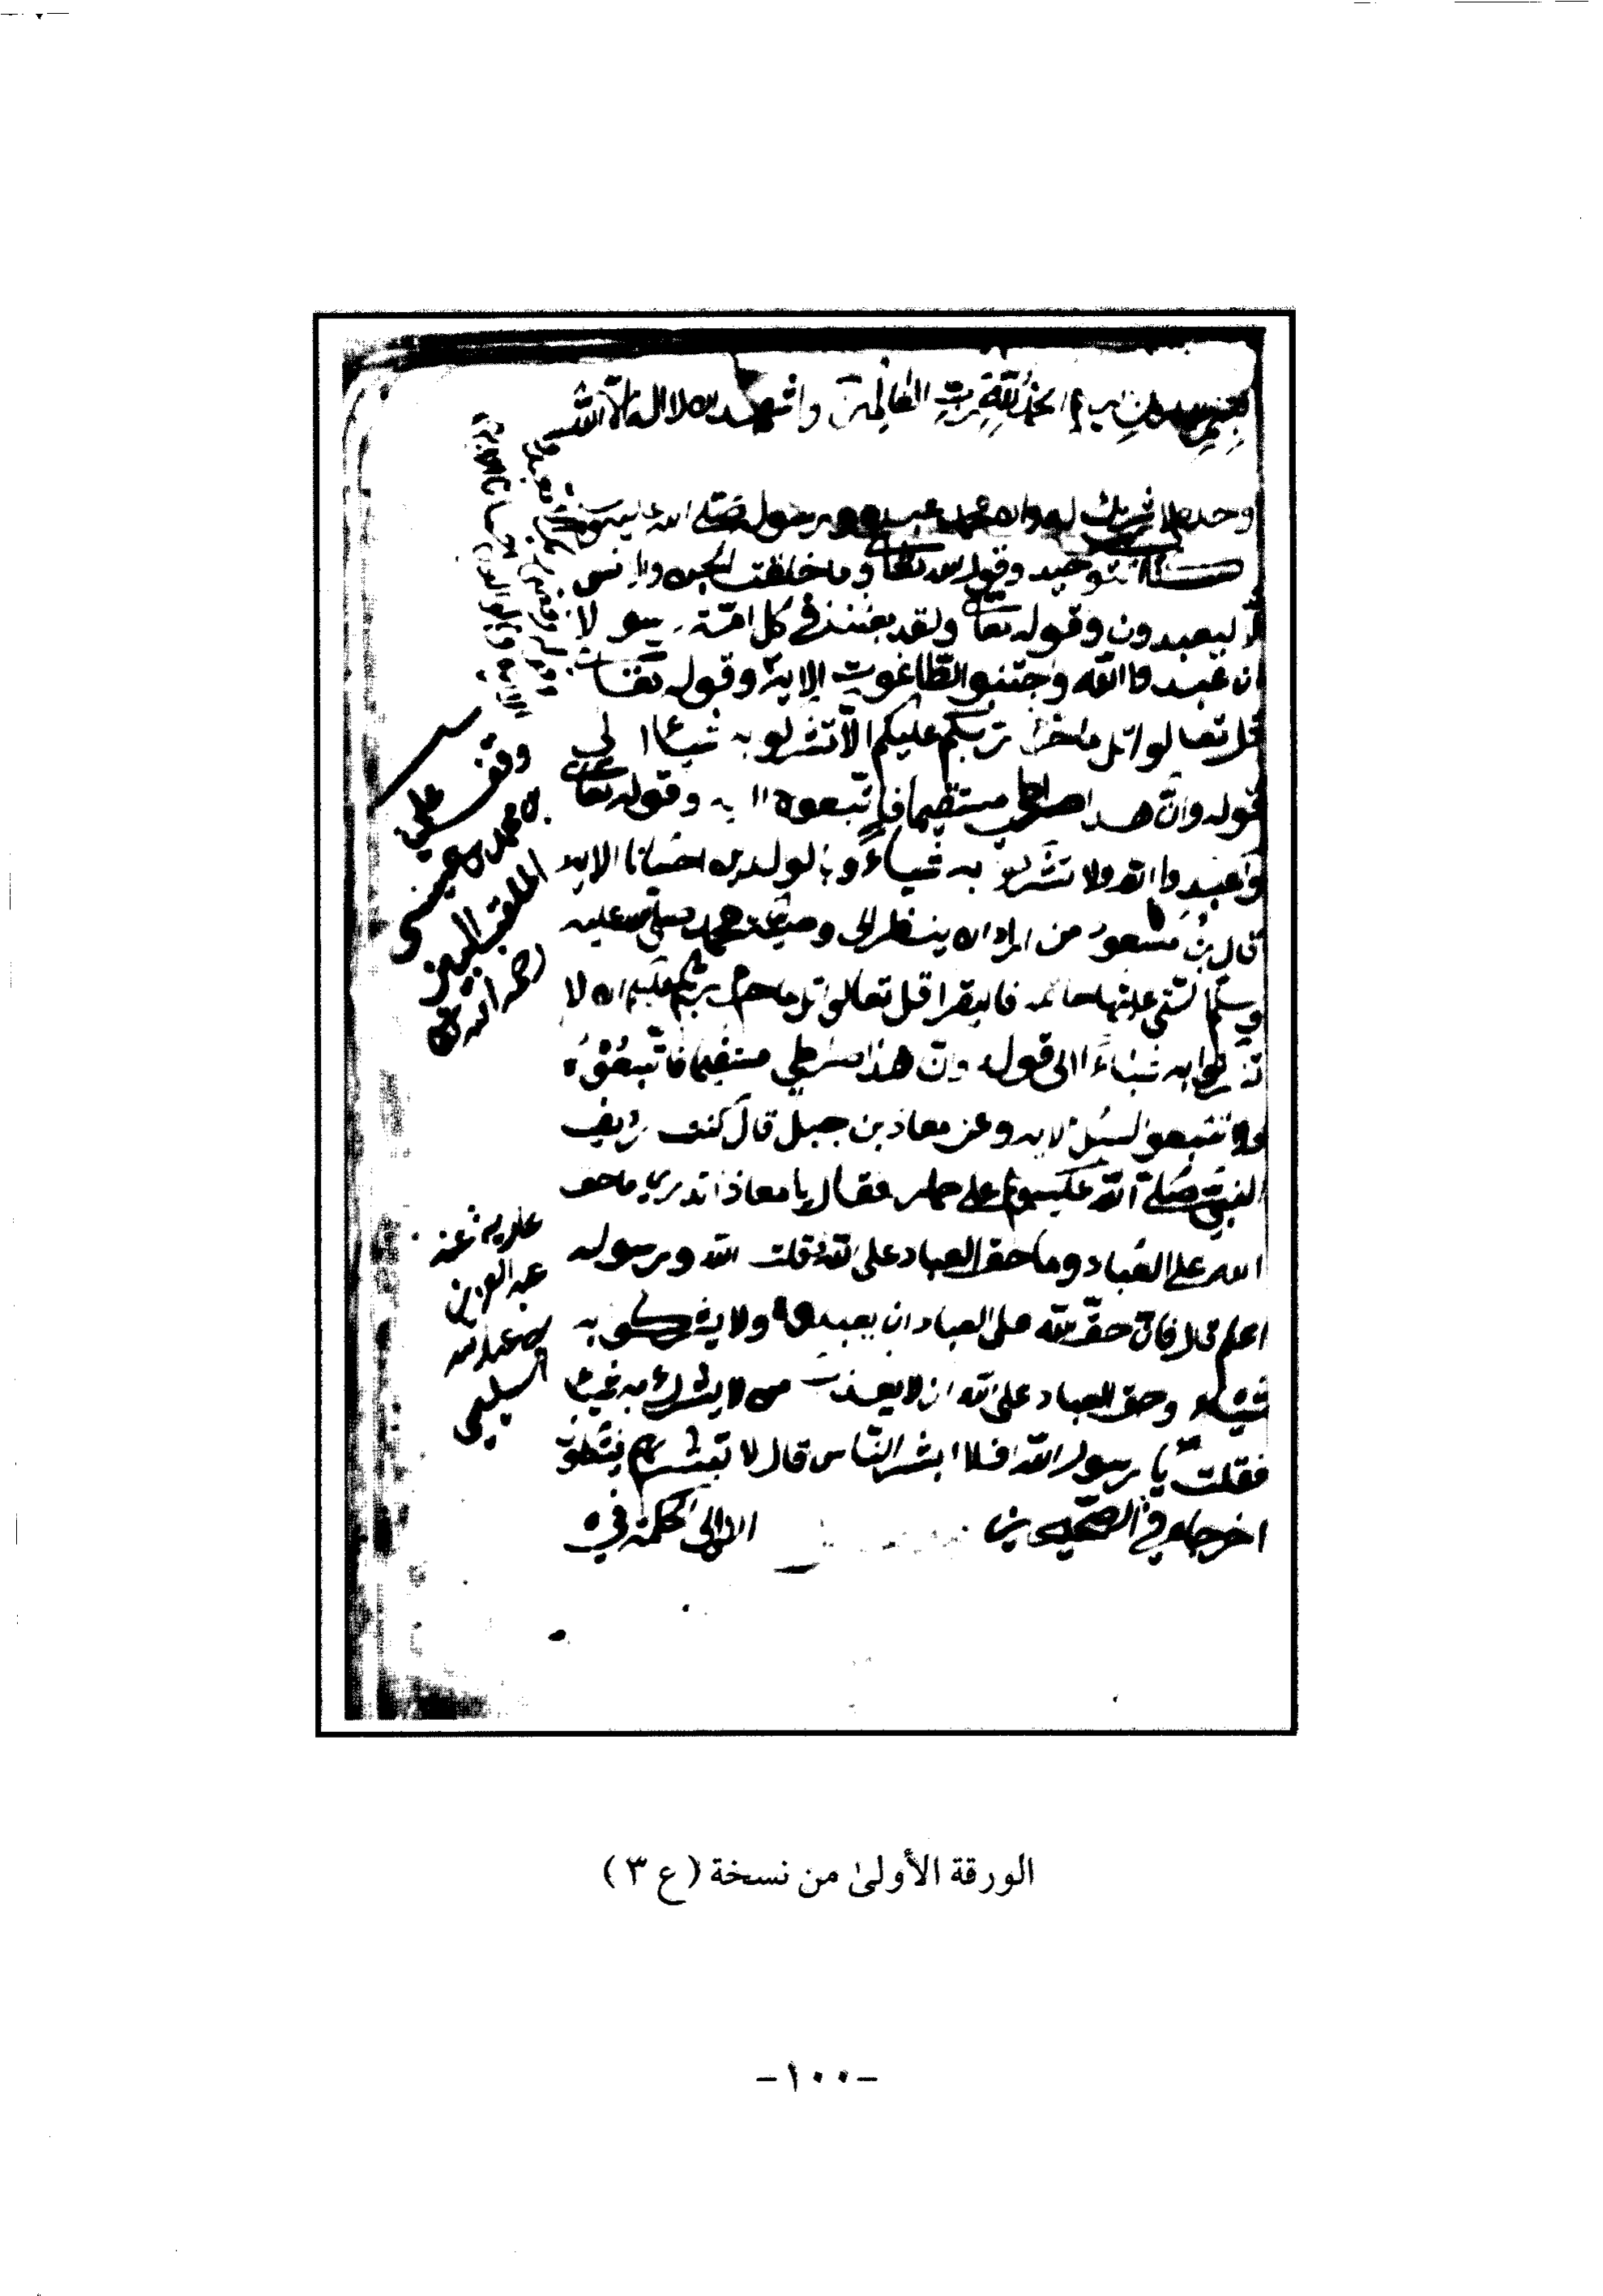 الحمد لله رب العالمين واشهد ان لا اله الا الله
وحده لا شريك له وان محمد عبده ورسوله صلى الله عليه وسلم
كتاب التوحيد وقول الله تعالى وما خلقت الجن والانس
الا ليعبدون وقوله تعا ولقد بعثنا في كل امة رسولا
ان عبدوا الله وجتنبو الطاغوت الاية وقوله تعالى
قل تعالوا تل ما حرم ربكم عليكم الا تشركو به شيئا الى
قوله وان هذا صراطي مستقيما فاتبعوه الايه وقوله تعالى
وعبدوا الله ولا تشركو به شياء وبالولدين احسانا الايه
قال بن مسعود من اراد ان ينظر الى وصية محمد صلى الله عليه
وسلم التي عليها خاتمه فاليقرا قل تعالى تل ما حرم ربكم عليكم ان لا
تشركوا به شياءً الى قوله وان هذا صرطي مستقيما فاتبعوه
ولا تتبعو السبل الايه وعن معاذ بن جبل قال كنت رديف
النبي صلى الله عليه وسلم على حمار فقال يا معاذ اتدري ما حق
الله على العباد وما حق العباد على الله قلت الله ورسوله
اعلم قال فان حق الله على العباد ان يعبدوه ولا يشركو به
شياء وحق العباد على الله ان لا يعذب من لا يشرك به شياء
فقلت يا رسول الله افلا ابشر الناس قال لا تبشرهم فيتكلو
اخرجاه في الصحيحين الاولى الحكمة في
وقف على
محمد بن عيسى
الملقب
رحمه الله
عارية عند
عبد العزيز
بن عبد الله
السليمي
الورقة الأولىٰ من نسخة (ع ٣)
-١٠٠-